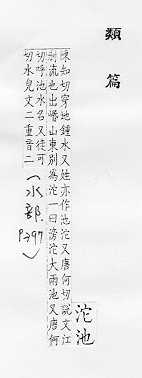 類篇
沱池
陳知切穿地鍾水又姓亦作池沱又唐何切說文江
別流也出㟭山東別為沱一曰滂沱大雨池又唐何
切呼池水名又徒可
切水皃文二重音二
(水部.
P397)